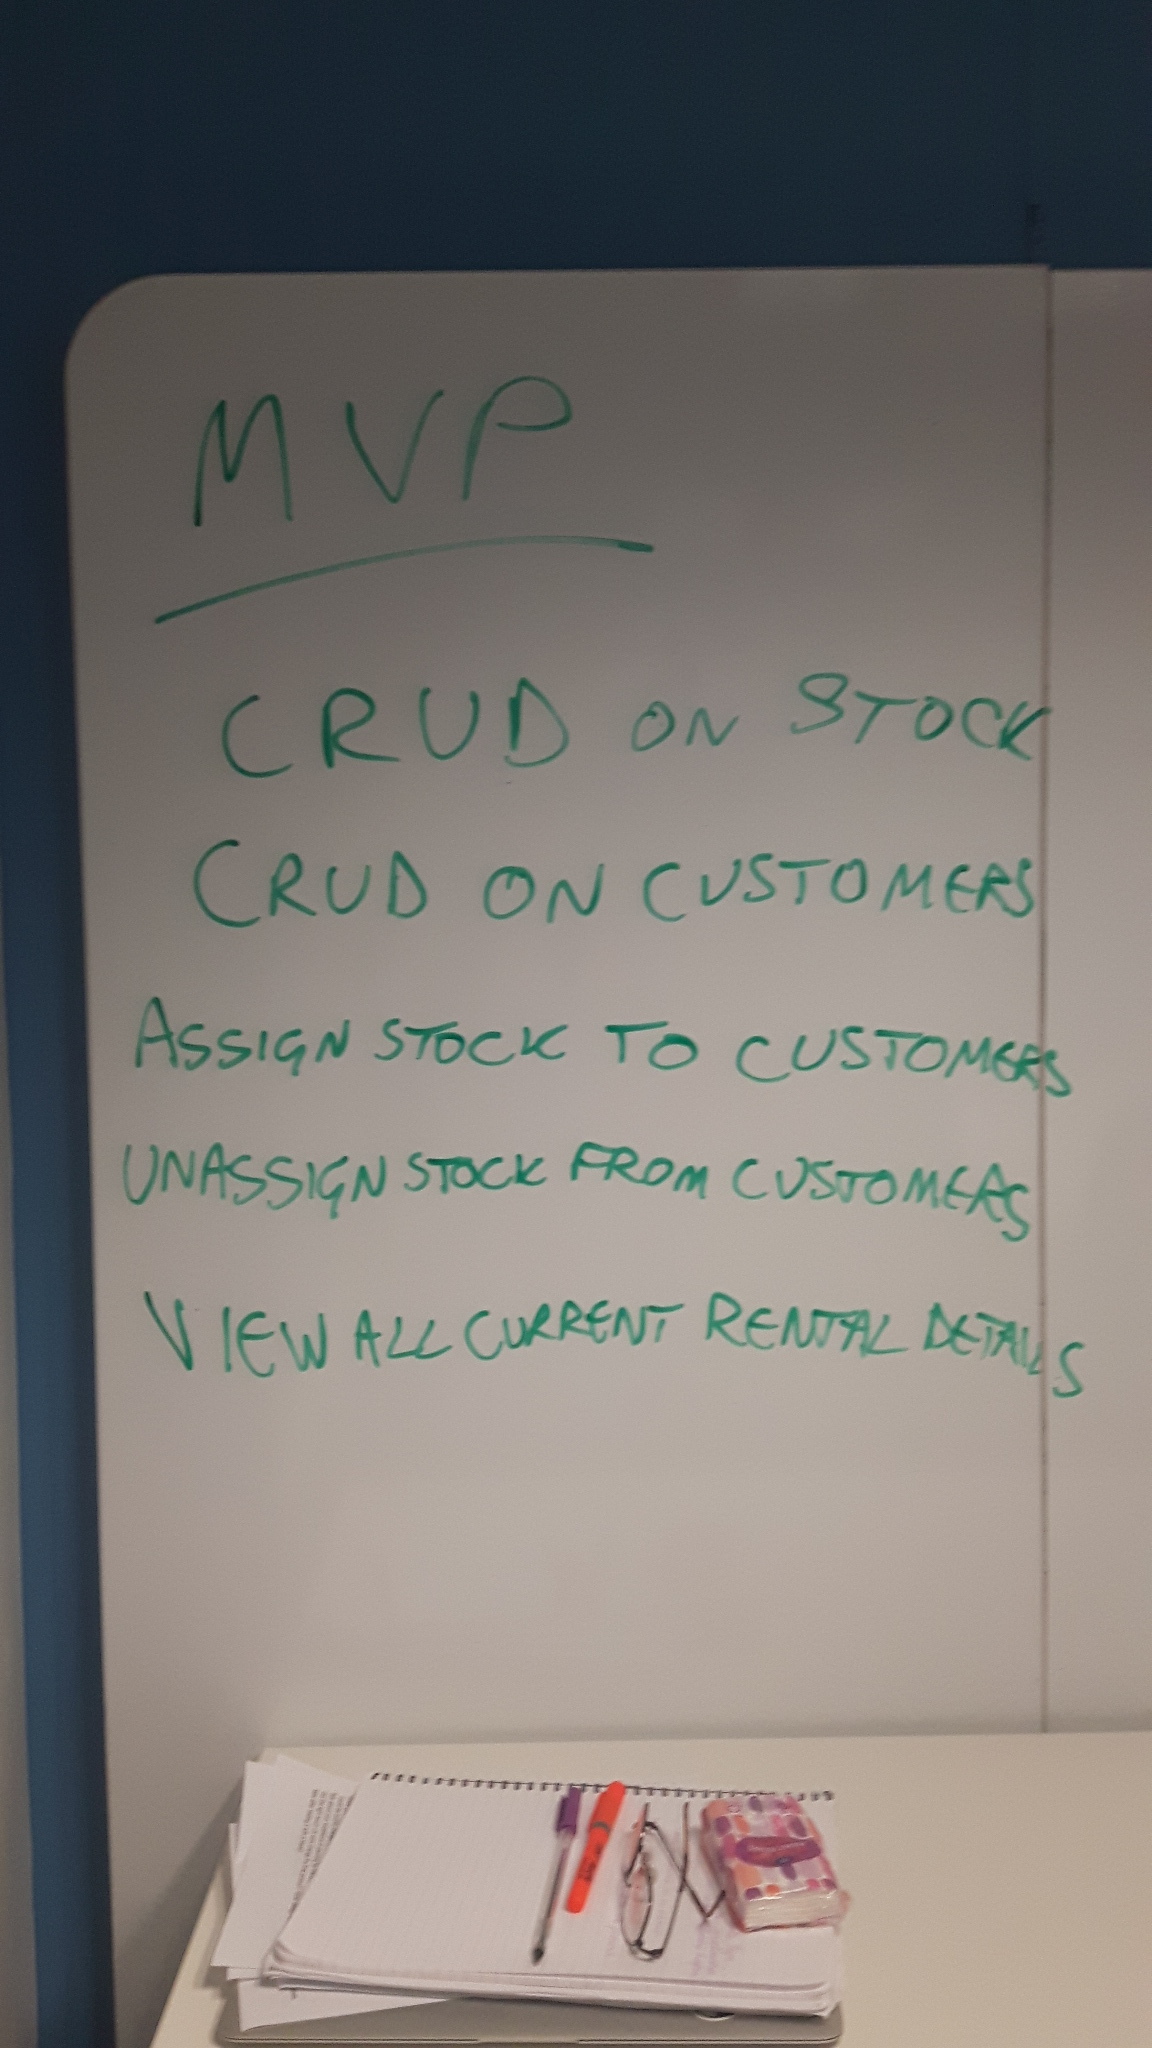 MVP
CRUD ON STOCK
CRUD ON CUSTOMERS
ASSIGN STOCK TO CUSTOMERS
UNASSIGN STOCK FROM CUSTOMERS
VIEW ALL CURRENT RENTAL DETAILS